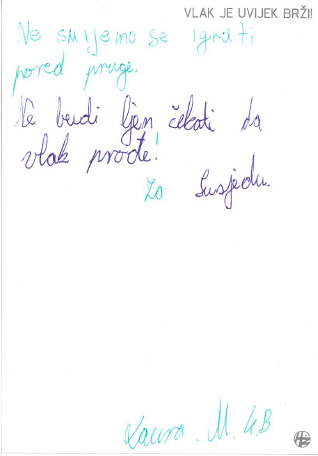 VLAK JE UVIJEK BRŽI!
Ne smijemo se igrati
pored pruge.
Ne budi ljen čekati da
vlak prođe!
Za Susjedu.
Laura. M. 4.B